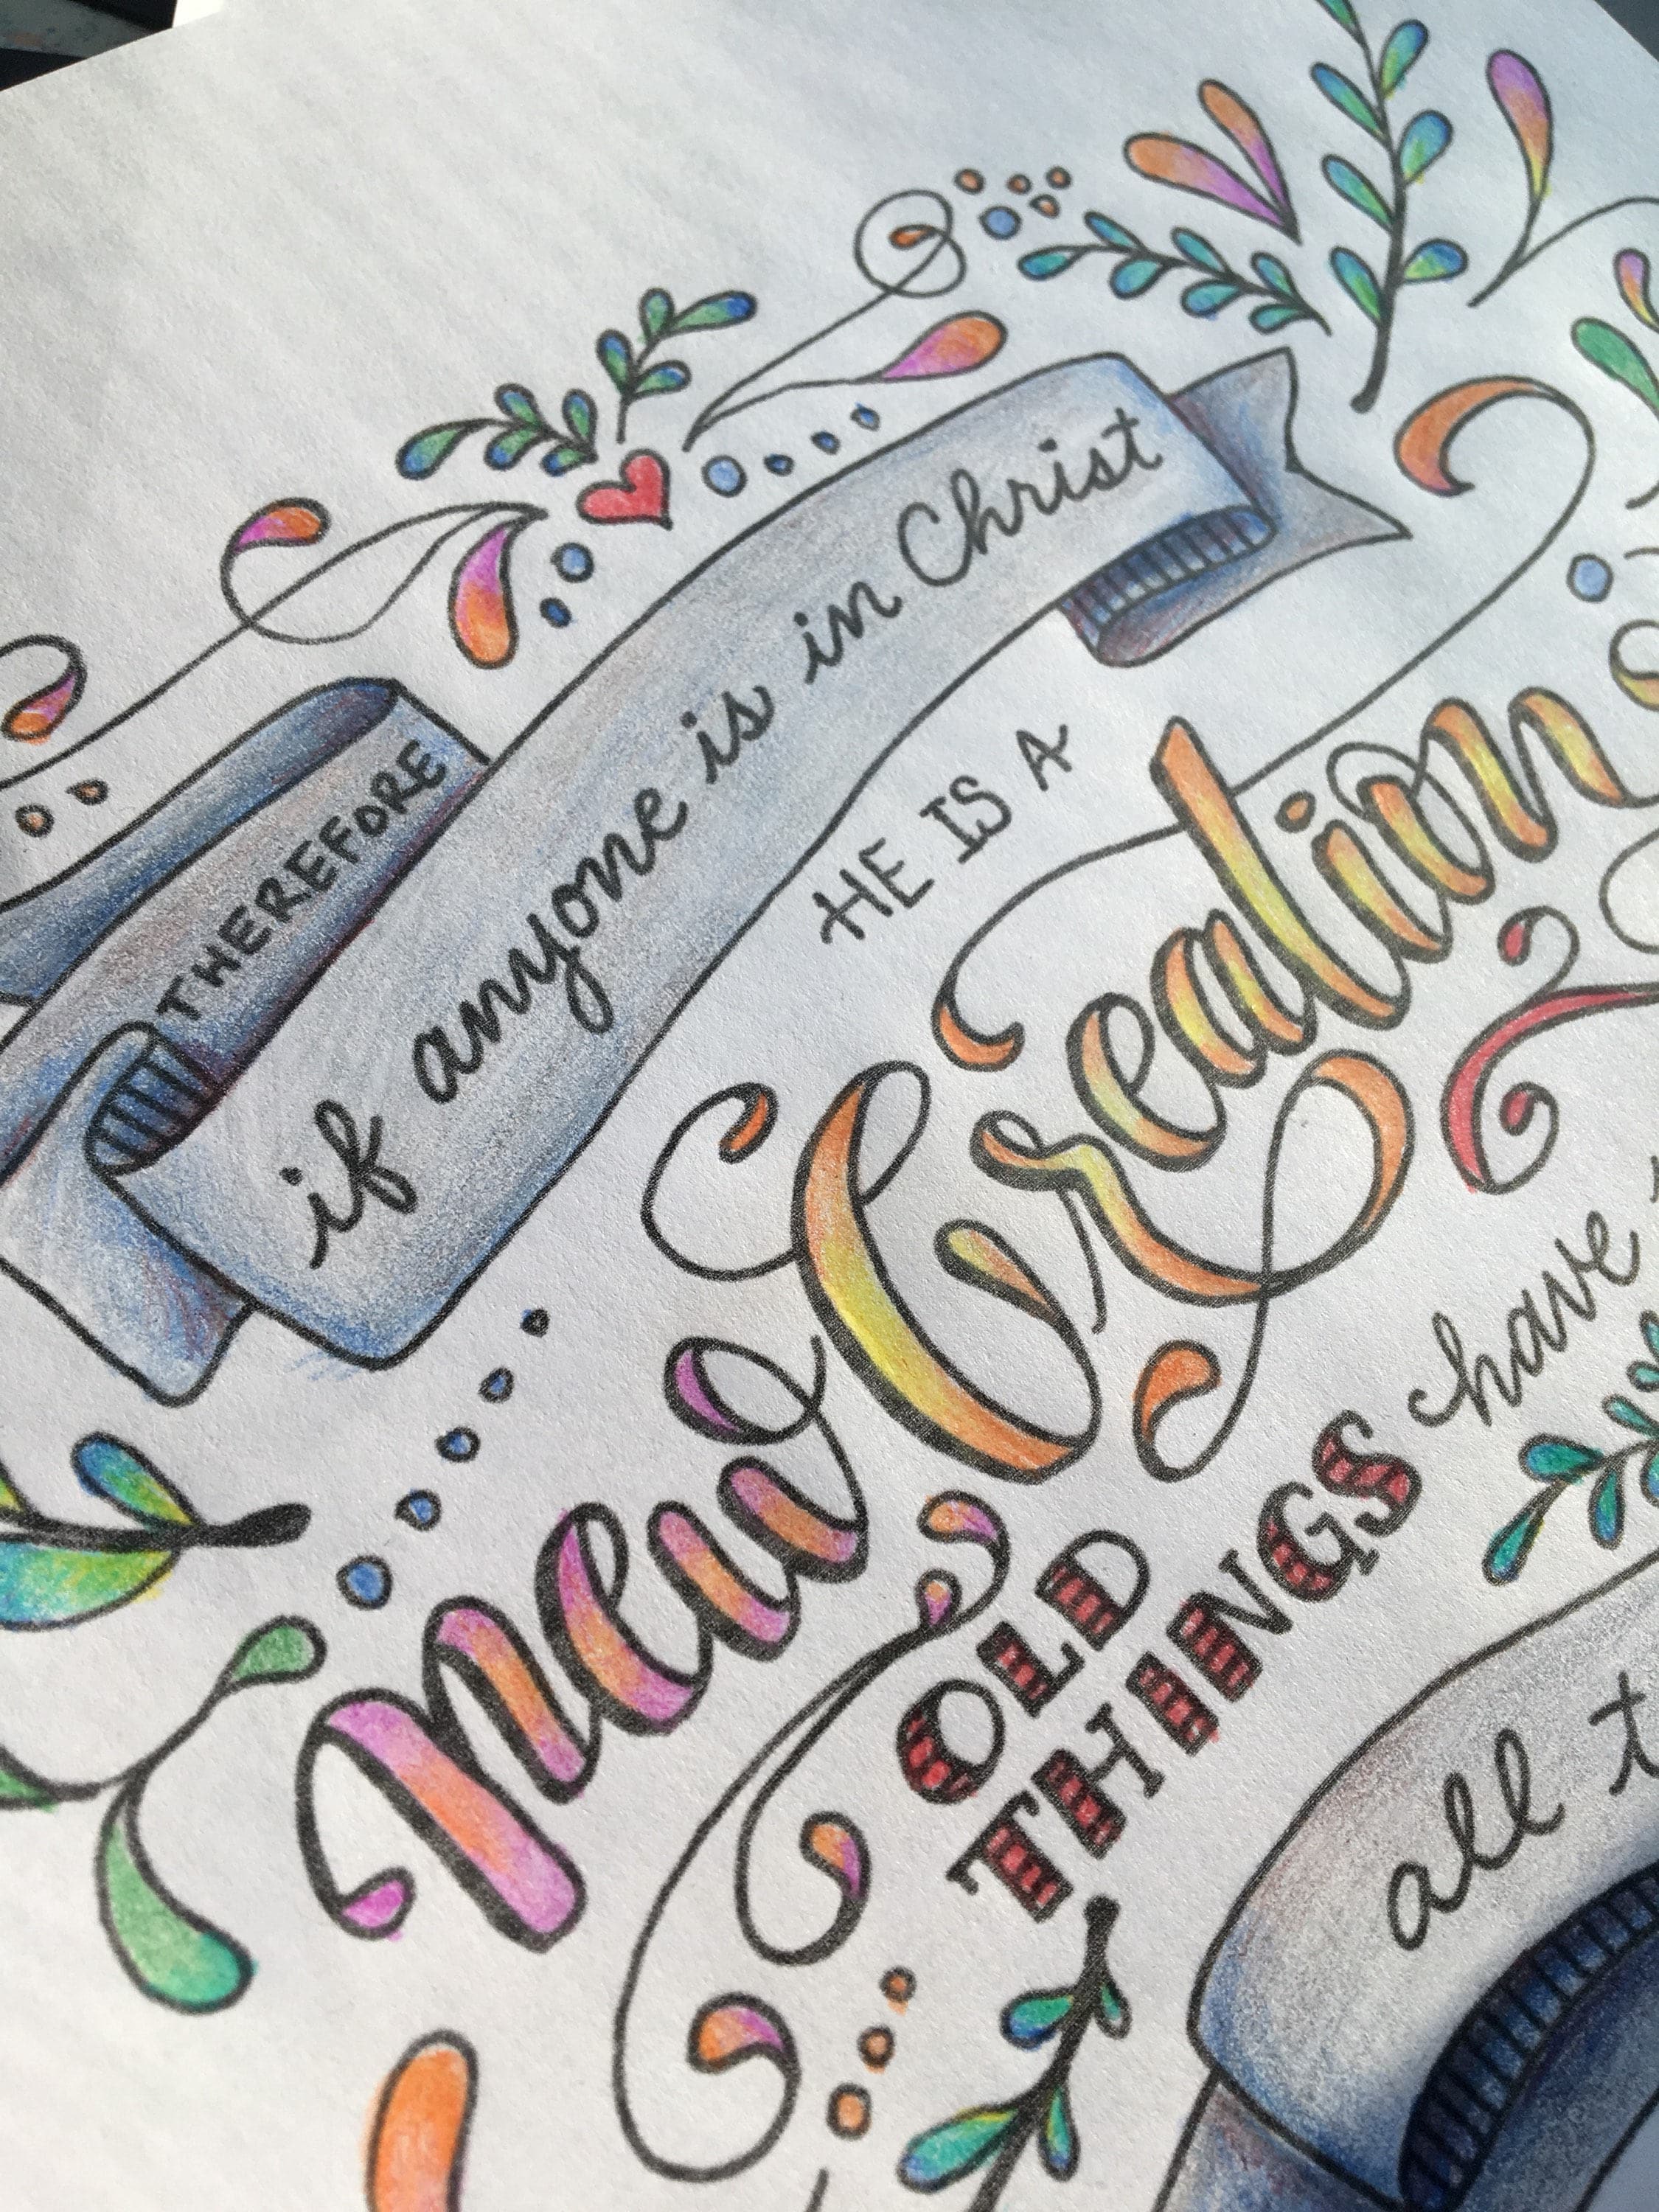 THEREFORE
if anyone is in Christ
HE IS A
new Creation
OLD
THINGS have
all